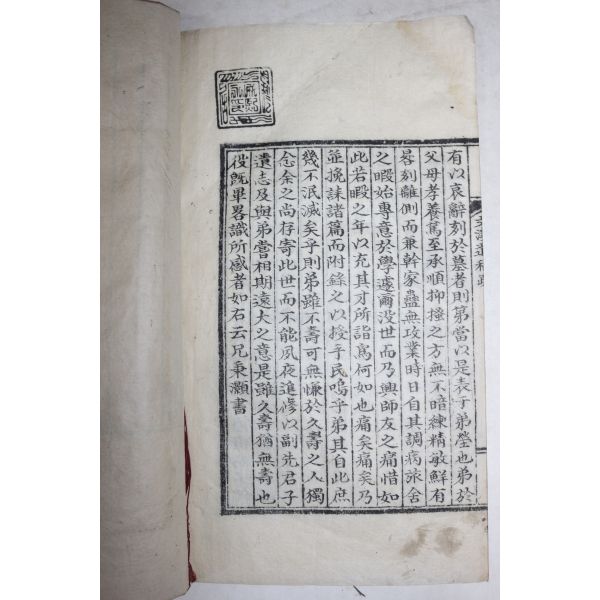 有以哀辭刻於墓者則第當以是表子弟塋也弟於
父母孝養篤至承順抑搔之方無不暗練精敏鮮有
晷刻離側而兼幹家蠱無攻業時日自其調病旅舍
之暇始專意於學遽爾没世而乃興師友之痛惜如
此若暇之年以充其才所詣爲何如也痛矣痛矣乃
並挽誄諸篇而附錄之以授子民嗚乎弟其自此庶
幾不泯滅矣乎則弟雖不壽可無慊於久壽之人獨
念余之尚存寄此世而不能夙夜進修以副先君子
遺志及與弟嘗相期遠大之意是雖久壽猶無壽也
役旣畢畧識所感者如右云兄秉灝書